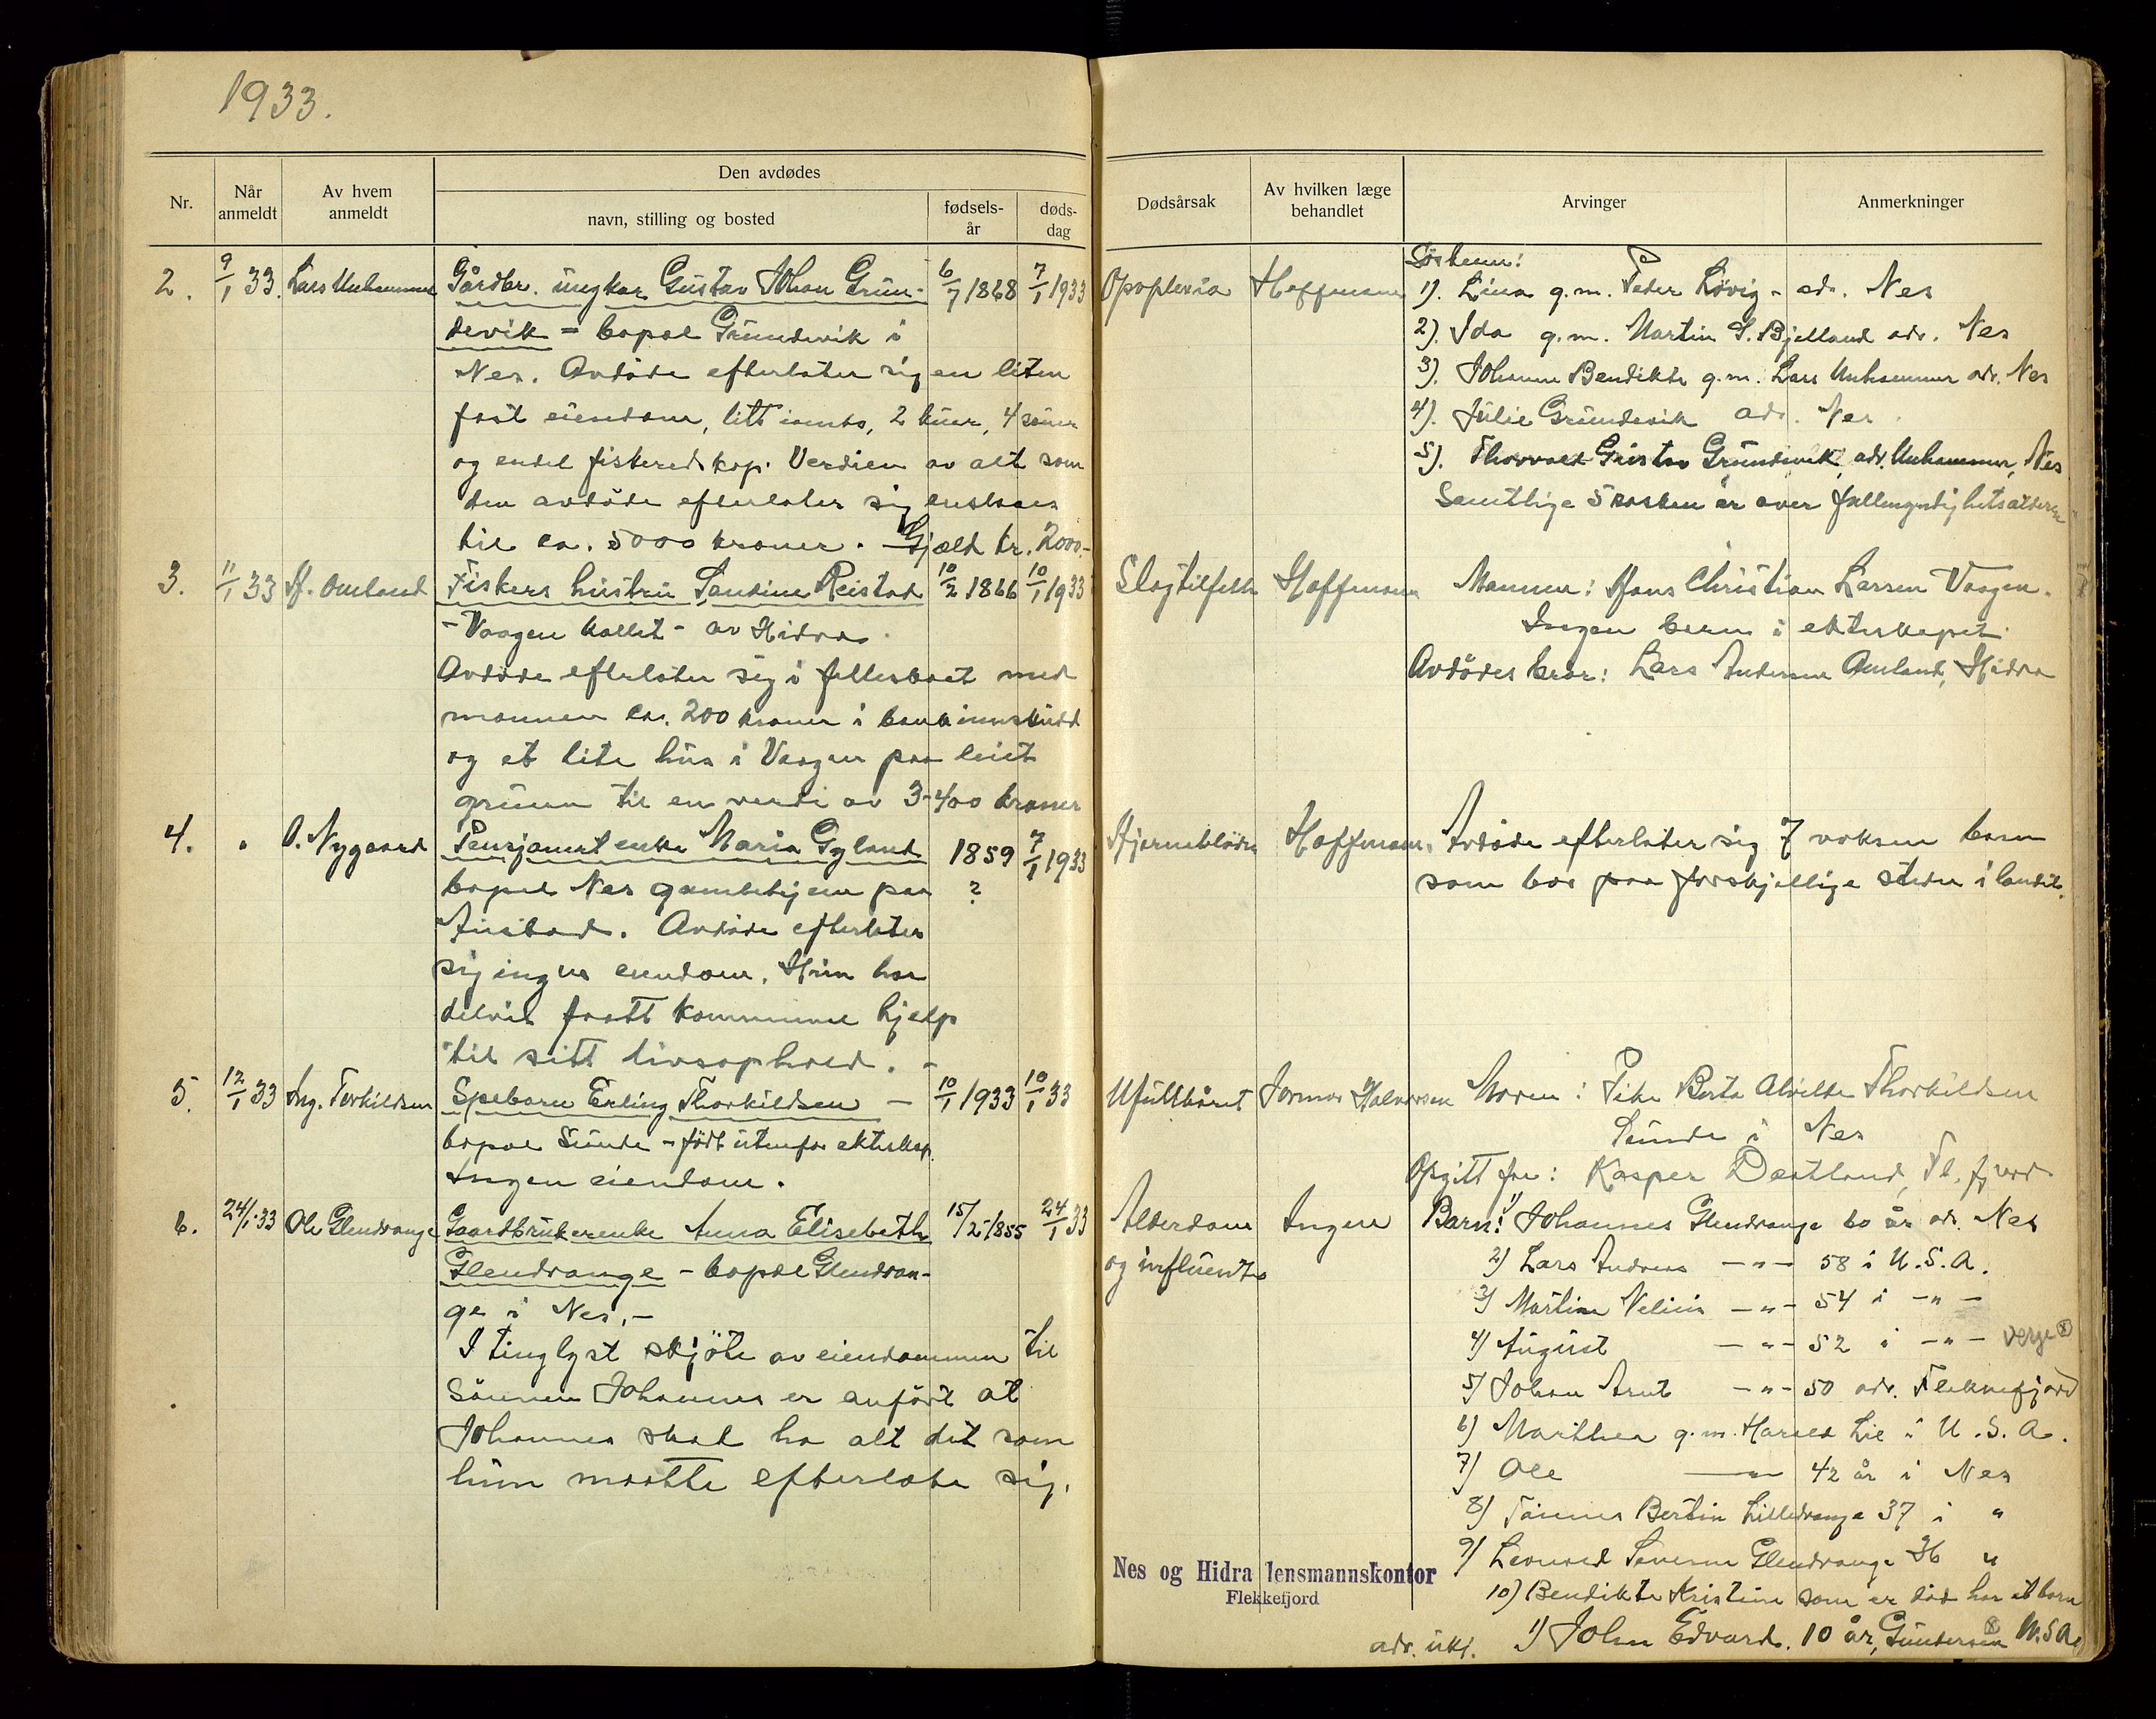 1933.
Nr.
Når anmeldt
Av hvem anmeldt
Den avdødes
navn, stilling og bosted
fødsels-år
døds-dag
Dødsårsak
Av hvilken læge behandlet
Arvinger
Anmerkninger
2. 9/1 33. Lars Unhammer Gårdbr. ungkar Gustav Johan Grun- 6/7 1868 7/1 1933
devik - bopæl Grundevik i
Nes. Avdøde efterlater sig en liten
fast eiendom, litt innbo, 2 kuer, 4 sauer
og endel fiskeredskap. Verdien av alt som
den avdøde efterlater sig
til ca. 5000 kroner. - Gjæld kr. 2000.-
Opoplexia Hoffmann
Søsken:
1). Lina g.m. Peder Løvig - adr. Nes
2). Ida g.m. Martin S. Bjelland adr. Nes
3). Johanne Bendikte g.m. Lars Unhammer adr. Nes
4). Julie Grundevik adr. Nes.
5). Thorvald Gustav Grundevik, adr. Unhammer, Nes
Samtlige søsken er over fullmyndighetsalderen
3. 11/1 33 H. Omland Fiskers hustru Sandine Reistad 10/2 1866 10/1 1933
- Vaagen kallet - av Hidra.
Avdøde efterlater sig i fellesboet med
mannen ca. 200 kroner i bankinnskudd
og et lite hus i Vaagen paa leiet
grunn til en verdi av 3-400 kroner
Slagtilfelle Hoffmann
Mannen: Hans Christian Larsen Vaagen.
Ingen barn i ekteskapet.
Avdødes bror: Lars Andersen Omland, Hidra
4. " O. Nygaard Pensjonert enke Maria Gyland 1859 7/1 1933
bopæl Nes gamlehjem paa ?
Avdøde efterlater
sig ingen eiendom. Hun har
delvis faatt kommunal hjelp
til sitt livsophold. -
Hjerneblødn. Hoffmann.
Avdøde efterlater sig 7 voksne barn
som bor paa forskjellige steder i landet.
5. 12/1 33 Ing. Torkildsen Spebarn Erling Thorkildsen - 10/1 1933 10/1 33
bopæl Sunde - født utenfor ekteskap.
Ingen eiendom.
Ufullbåret Jormor Halvorsen
Moren: Pike Berta Alvilde Thorkildsen
Sunde i Nes
Opgitt far: Kasper Destland, Fl. fjord
6. 24/1-33 Ole Glendrange Gaardbrukerenke Anna Elisebeth 15/2-1855 24/1 33
Glendrange - bopæl Glendran-
ge i Nes. -
I tinglyst skjøte av eiendommen til
sønnen Johannes er anført at
Johannes skal ha alt det som
hun maatte efterlate sig.
Alderdom Ingen
og influenza
Barn: 1) Johannes Glendrange 60 år adr. Nes
2) Lars Andreas -"- 58 i U.S.A.
3) Martin Velius -"- 54 i -"-
4) August -"- 52 i -"- verge (x)
5) Johan Arnt -"- 50 adr. Flekkefjord
6) Marthea g.m. Harald Lie i U.S.A.
7) Ole -"- 42 år i Nes
8) Tønnes Bertin Lilledrange 37 i "
9) Leonard Severin Glendrange 36 "
10) Bendikte Kristine som er død har et barn
1) John Edvard. 10 år, Gundersen (x) U.S.A.
adr. ukj.
Nes og Hidra lensmannskontor
Flekkefjord